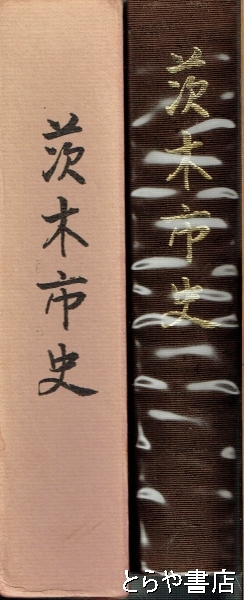 茨木市史
茨木市史
とらや書店